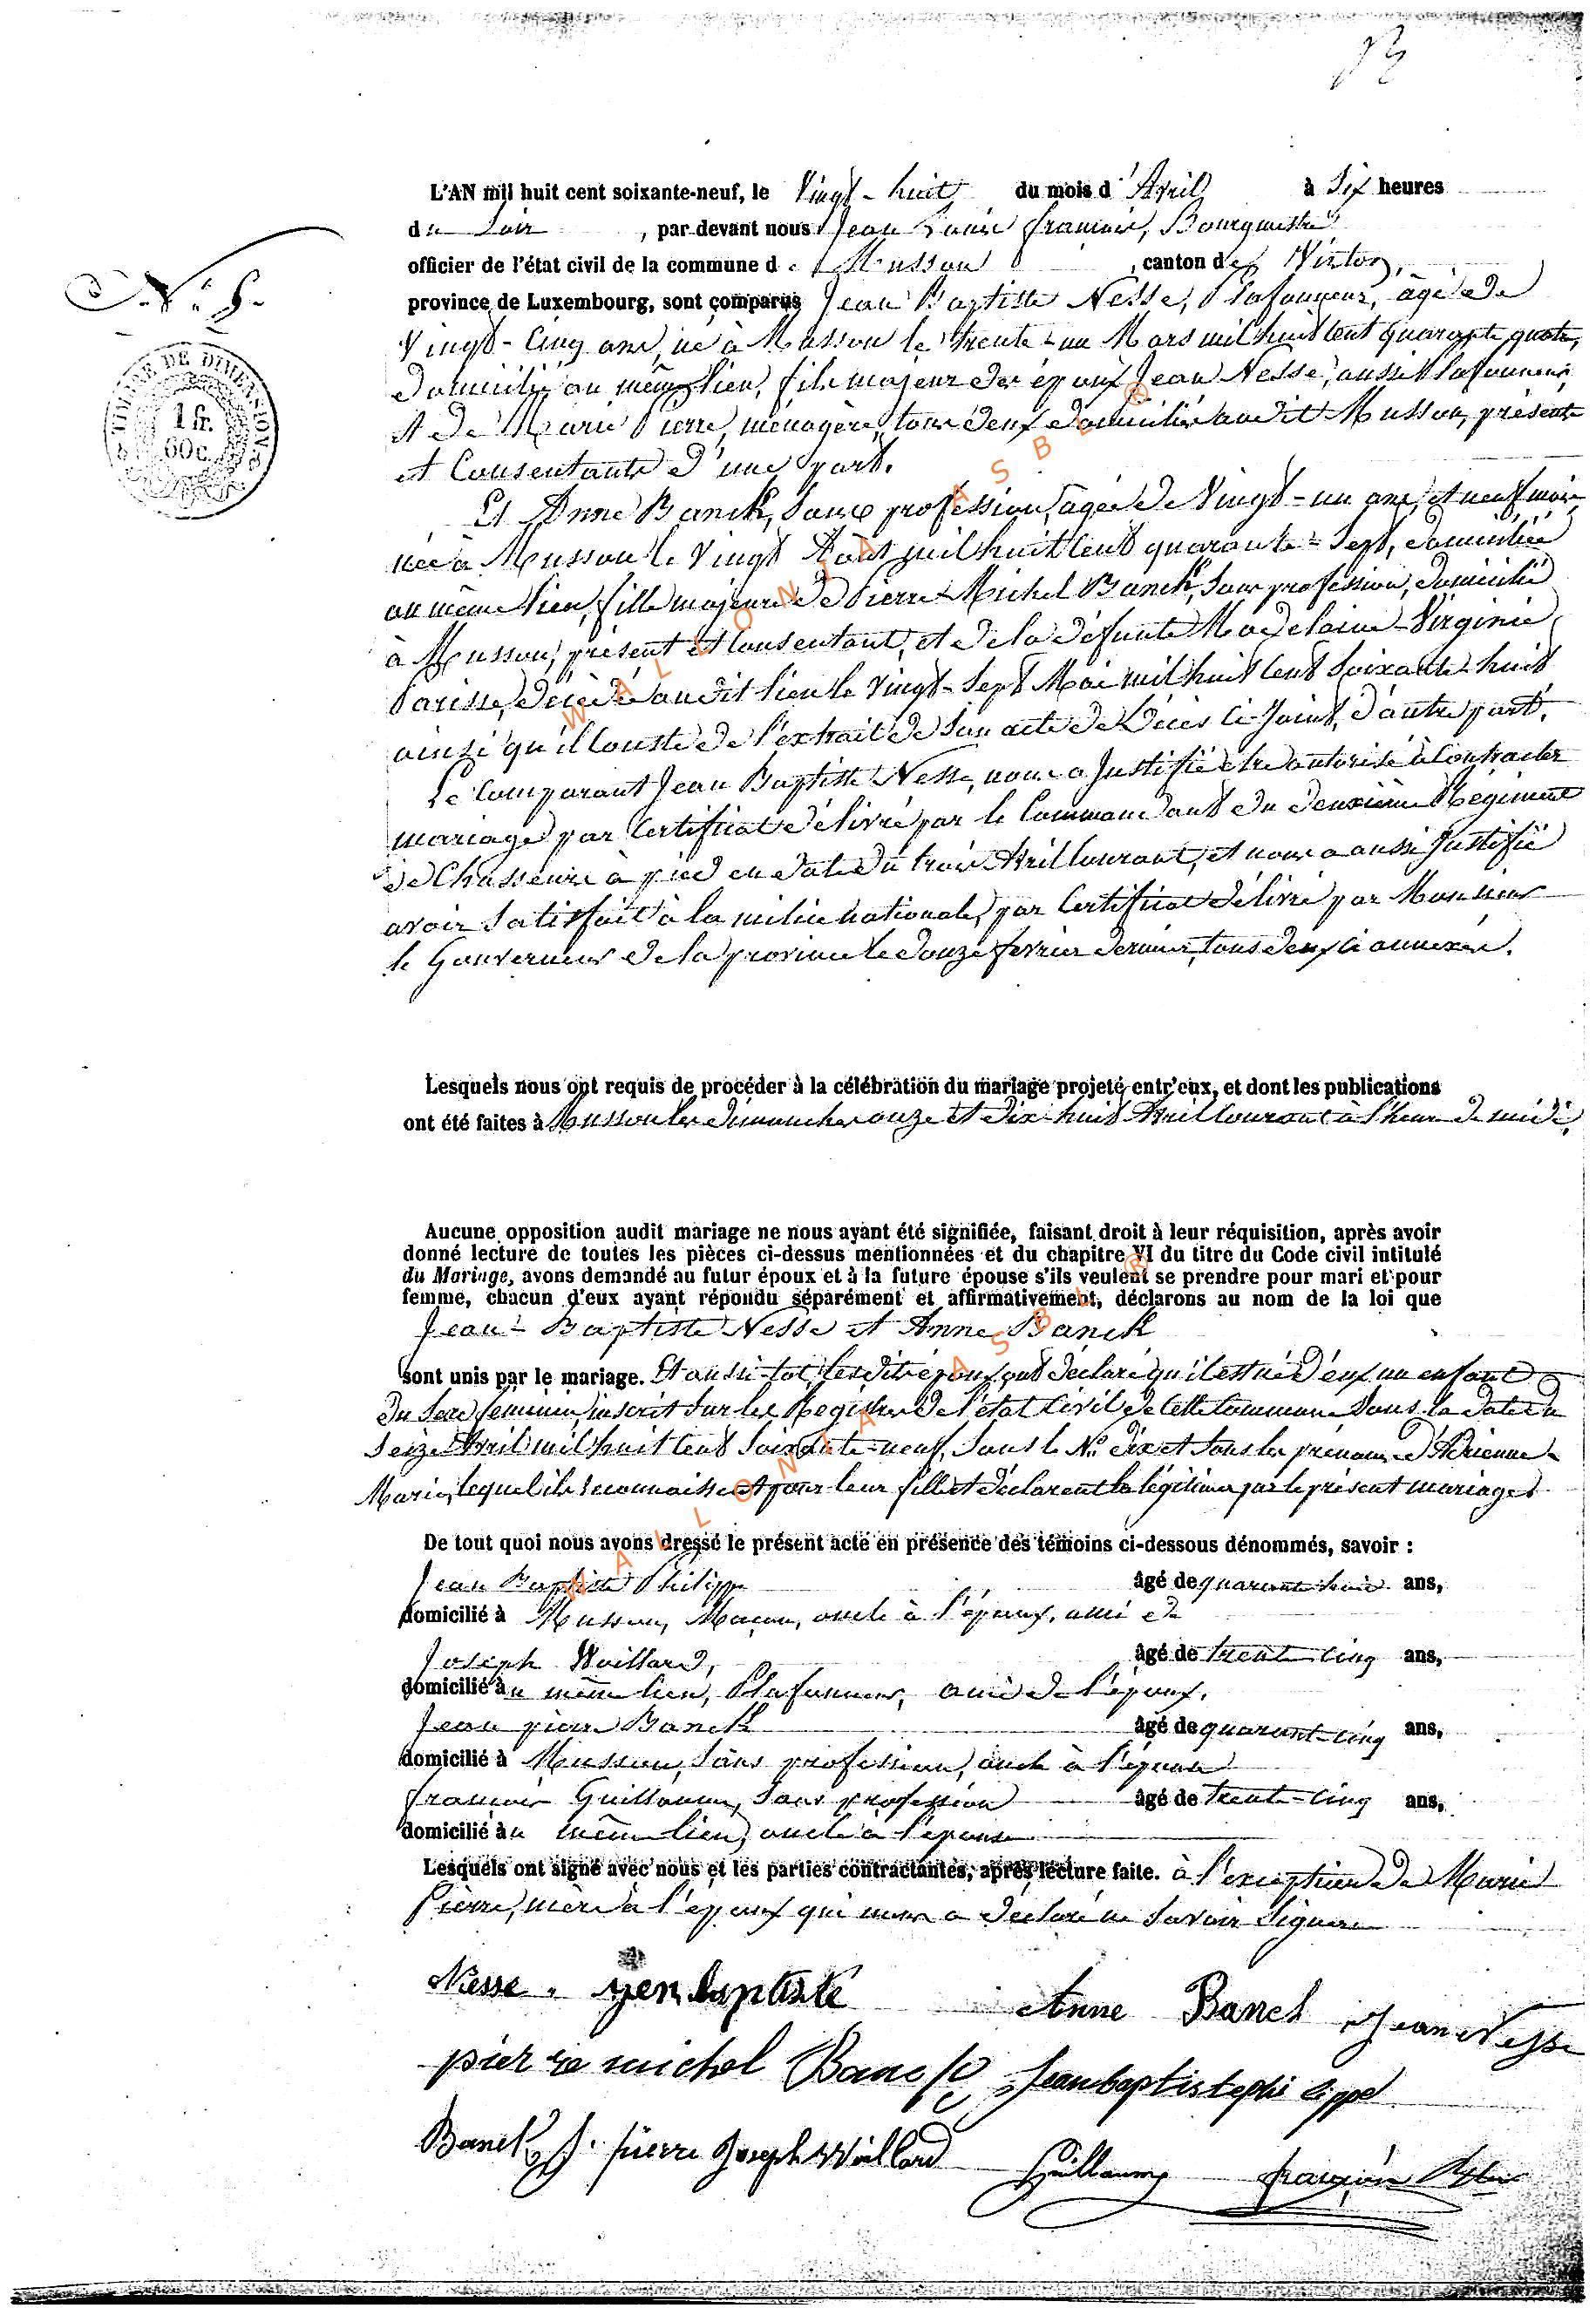 53
L'AN mil huit cent soixante-neuf, le Vingt-huit du mois d'Avril à Six heures
du Soir, par devant nous Jean Louis François, Bourgmestre
officier de l'état civil de la commune de Musson, canton de Virton,
N.° 5.
province de Luxembourg, sont comparus Jean Baptiste Nesse, Plafonneur, âgé de
Vingt-Cinq ans, né à Musson le trente-un Mars mil huit Cent quarante quatre,
domicilié au même lieu, fils majeur des époux Jean Nesse, aussi Plafonneur,
et de Marie Pierre, ménagère, tous deux domiciliés audit Musson, présents
et Consentants d'une part.
TIMBRE DE DIMENSION
1 fr.
60 c.
Et Anne Banck, Sans profession, âgée de Vingt-un ans et neuf mois
née à Musson le Vingt Août mil huit Cent quarante-Sept, domiciliée
au même lieu, fille majeure de Pierre-Michel Banck, Sans profession, domicilié
à Musson, présent et Consentant, et de la défunte Madelaine-Virginie
Parisse, décédée audit lieu le Vingt-Sept Mai mil huit Cent Soixante-huit
ainsi qu'il Conste de l'extrait de Son acte de Décès Ci-Joint, d'autre part.
Le Comparant Jean Baptiste Nesse, nous a Justifié être autorisé à Contracter
mariage par Certificat délivré par le Commandant du deuxième Régiment
de Chasseurs à pied en date du trois Avril Courant, et nous a aussi Justifié
avoir Satisfait à la milice nationale, par Certificat délivré par Monsieur
le Gouverneur de la province le douze fevrier dernier, tous deux ci annexés.
Lesquels nous ont requis de procéder à la célébration du mariage projeté entr'eux, et dont les publications
ont été faites à Musson les dimanches onze et dix-huit Avril Courant à l'heure de midi.
Aucune opposition audit mariage ne nous ayant été signifiée, faisant droit à leur réquisition, après avoir
donné lecture de toutes les pièces ci-dessus mentionnées et du chapitre VI du titre du Code civil intitulé
du Mariage, avons demandé au futur époux et à la future épouse s'ils veulent se prendre pour mari et pour
femme, chacun d'eux ayant répondu séparément et affirmativement, déclarons au nom de la loi que
Jean-Baptiste Nesse et Anne Banck
sont unis par le mariage. Et aussi-tot, lesdits époux ont déclaré qu'il est né d'eux un enfant
du Sexe féminin, inscrit Sur les Registres de l'état Civil de Cette Commune Sous la date du
Seize Avril mil huit Cent Soixante-neuf, Sous le N.° dix et Sous les prénoms d'Adrienne-
Marie, lequel ils reconnaissent pour leur fille et déclarent la légitimer par le présent mariage.
De tout quoi nous avons dressé le présent acte en présence des témoins ci-dessous dénommés, savoir :
Jean Baptiste Philippe âgé de quarante-huit ans,
domicilié à Musson, Maçon, oncle à l'époux, ami de
Joseph Waillard, âgé de trente-cinq ans,
domicilié au même lieu, Plafonneur, ami de l'époux.
Jean pierre Banck âgé de quarante-cinq ans,
domicilié à Musson, Sans profession, oncle à l'épouse
François Guillaume, Sans profession âgé de trente-cinq ans,
domicilié au même lieu, oncle à l'épouse
Lesquels ont signé avec nous et les parties contractantes, après lecture faite. à l'exception de Marie
Pierre, mère à l'époux qui nous a déclaré ne Savoir Signer
Nesse. yen baptiste Anne Banck Jean Nesse
pierre michel Banck Jean baptiste phi lippe
Banck J. pierre Joseph Waillard Guillaume françois
WALLONIA ASBL ®
WALLONIA ASBL ®